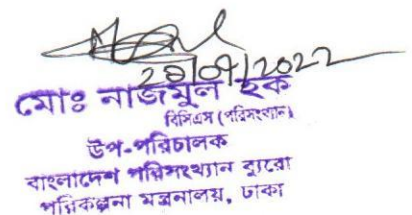 28/07/2022
মোঃ নাজমুল হক
বিসিএস (পরিসংখ্যান)
উপ-পরিচালক
বাংলাদেশ পরিসংখ্যান ব্যুরো
পরিকল্পনা মন্ত্রনালয়, ঢাকা